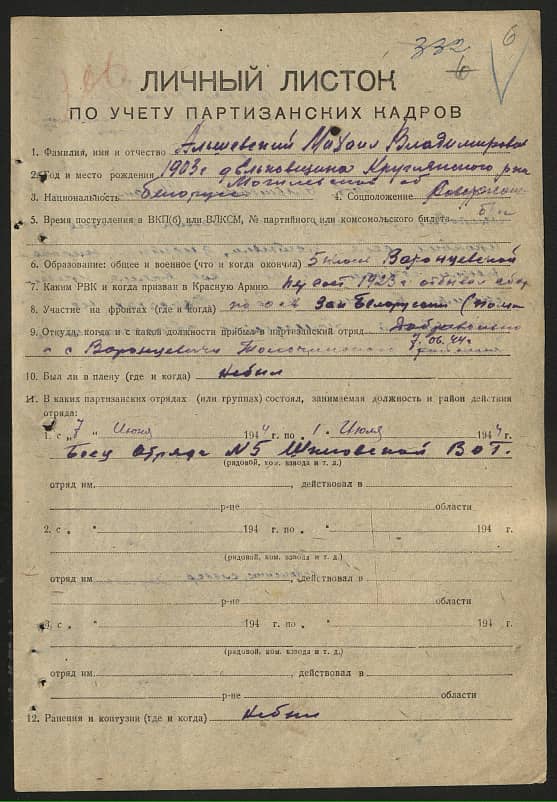 332
6
6
ЛИЧНЫЙ ЛИСТОК
ПО УЧЕТУ ПАРТИЗАНСКИХ КАДРОВ
1. Фамилия, имя и отчество Альшевский Михаил Владимирович
2. Год и место рождения 1903 г Круглянского р-на
Могилевской об
3. Национальность белорус 4. Соцположение
5. Время поступления в ВКП(б) или ВЛКСМ, № партийного или комсомольского билета б/п
6. Образование: общее и военное (что и когда окончил) 5 класс Воронцевской
7. Каким РВК и когда призван в Красную Армию 1923 г отбывал
8. Участие на фронтах (где и когда) Зап Белоруссии
9. Откуда, когда и с какой должности прибыл в партизанский отряд Добровольно
с Воронцевичи Толочинского района 7.06.44г
10. Был ли в плену (где и когда) не был
11. В каких партизанских отрядах (или группах) состоял, занимаемая должность и район действия
отряда:
1. с „7 “ Июня 1944 г. по 1 · Июля 1944 г.
Боец Отряда №5 Шкловской В О Г.
(рядовой, ком. взвода и т. д.)
отряд им. , действовал в
р-не области
2. с „ “ 194 г. по „ “ 194 г.
(рядовой, ком. взвода и т. д.)
отряд им. , действовал в
р-не области
3. с „ “ 194 г. по „ “ 194 г.
(рядовой, ком. взвода и т. д.)
отряд им. , действовал в
р-не области
12. Ранения и контузии (где и когда) не был